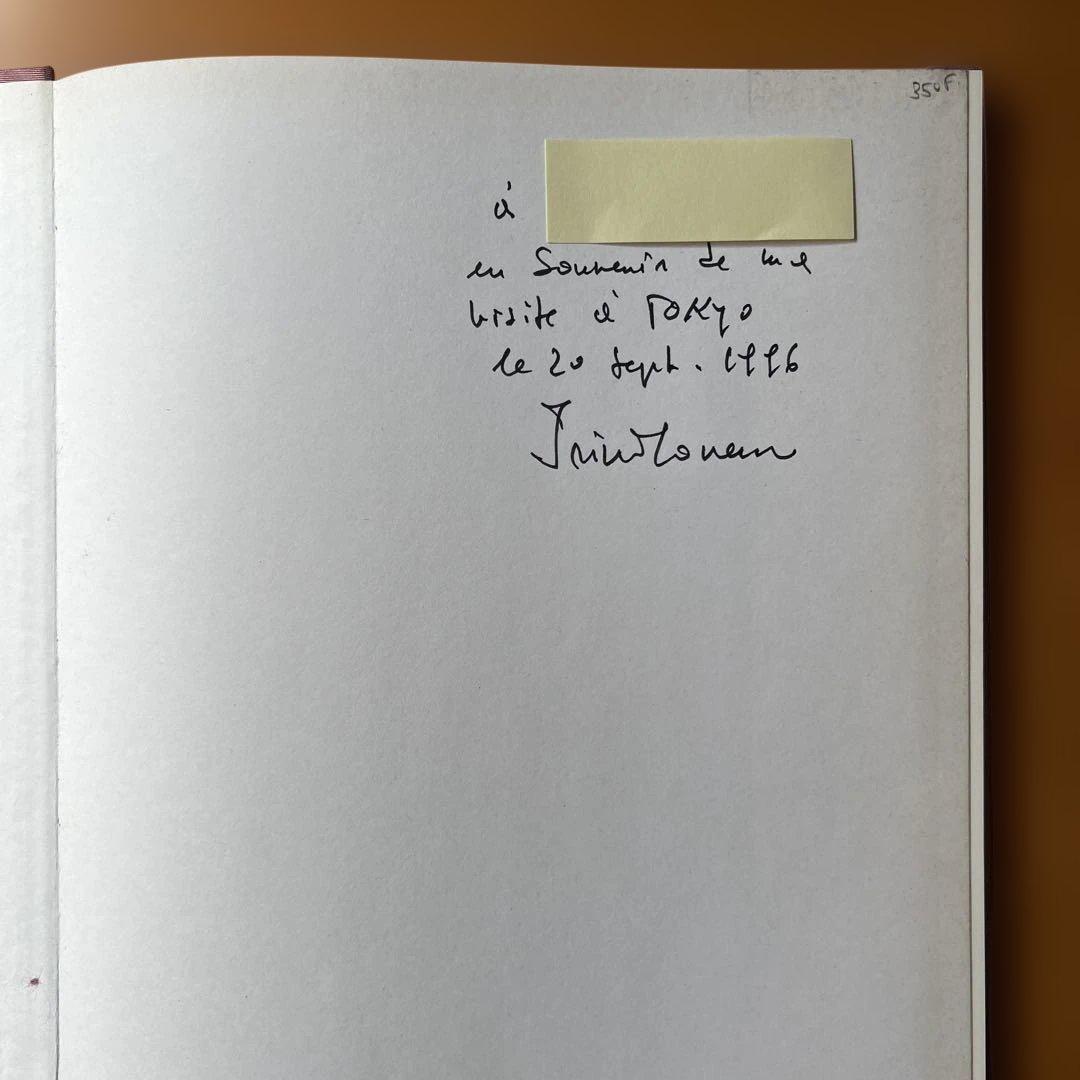 350F.
à
en Souvenir de ma
visite à TOKYO
le 20 Sept. 1996